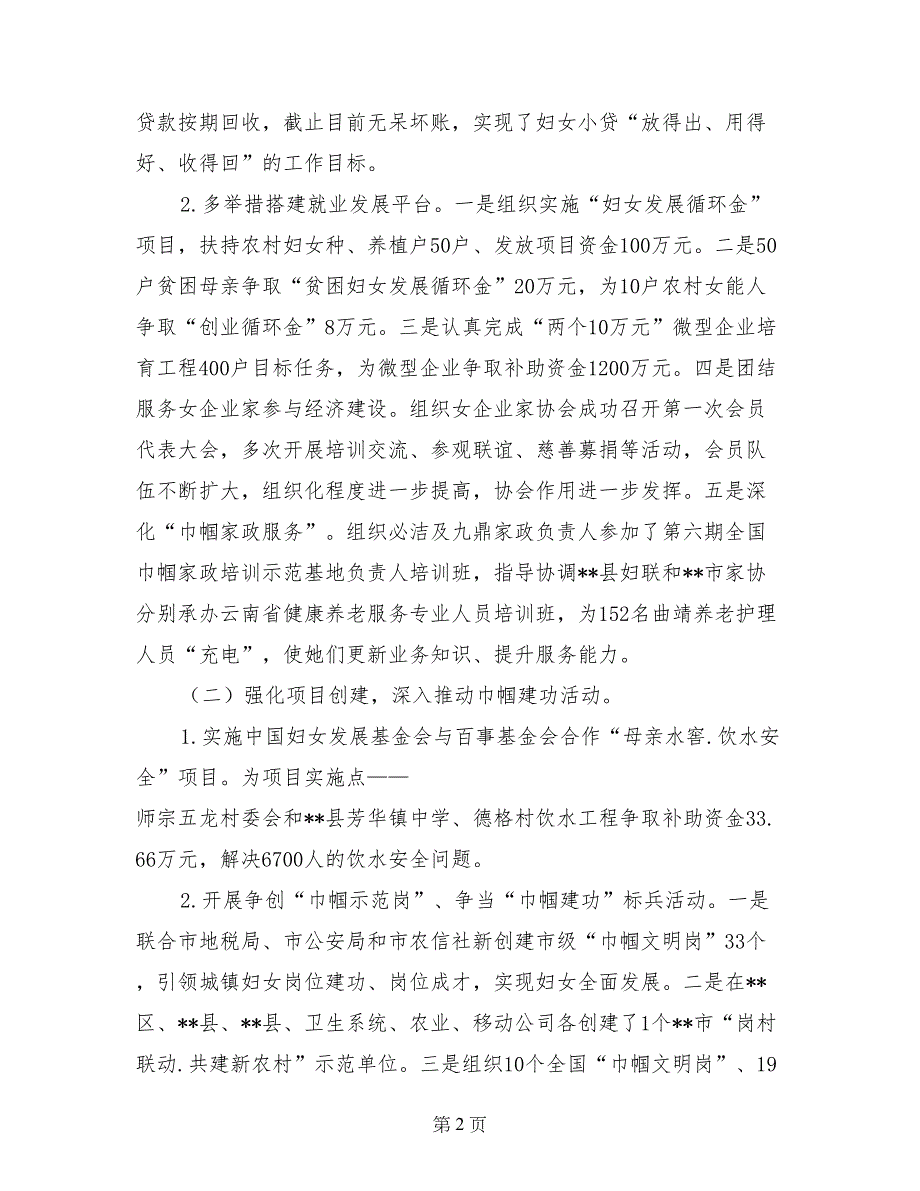 贷款按期回收，截止目前无呆坏账，实现了妇女小贷“放得出、用得
好、收得回”的工作目标。
2.多举措搭建就业发展平台。一是组织实施“妇女发展循环金”
项目，扶持农村妇女种、养植户50户、发放项目资金100万元。二是50
户贫困母亲争取“贫困妇女发展循环金”20万元，为10户农村女能人
争取“创业循环金”8万元。三是认真完成“两个10万元”微型企业培
育工程400户目标任务，为微型企业争取补助资金1200万元。四是团结
服务女企业家参与经济建设。组织女企业家协会成功召开第一次会员
代表大会，多次开展培训交流、参观联谊、慈善募捐等活动，会员队
伍不断扩大，组织化程度进一步提高，协会作用进一步发挥。五是深
化“巾帼家政服务”。组织必洁及九鼎家政负责人参加了第六期全国
巾帼家政培训示范基地负责人培训班，指导协调**县妇联和**市家协
分别承办云南省健康养老服务专业人员培训班，为152名曲靖养老护理
人员“充电”，使她们更新业务知识、提升服务能力。
（二）强化项目创建，深入推动巾帼建功活动。
1.实施中国妇女发展基金会与百事基金会合作“母亲水窖.饮水安
全”项目。为项目实施点——
师宗五龙村委会和**县芳华镇中学、德格村饮水工程争取补助资金33.
66万元，解决6700人的饮水安全问题。
2.开展争创“巾帼示范岗”、争当“巾帼建功”标兵活动。一是
联合市地税局、市公安局和市农信社新创建市级“巾帼文明岗”33个
，引领城镇妇女岗位建功、岗位成才，实现妇女全面发展。二是在**
区、**县、**县、卫生系统、农业、移动公司各创建了1个**市“岗村
联动.共建新农村”示范单位。三是组织10个全国“巾帼文明岗”、19
第 2 页